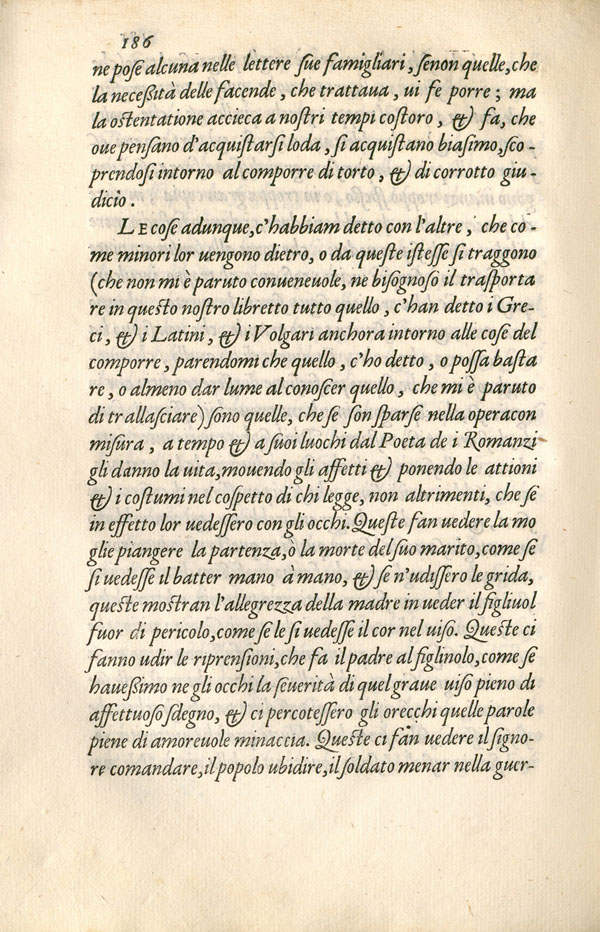 186
ne pose alcuna nelle lettere sue famigliari, senon quelle, che
la neceßità delle facende, che trattaua, ui fe porre; ma
la ostentatione accieca a nostri tempi costoro, & fa, che
oue pensano d'acquistarsi loda, si acquistano biasimo, sco-
prendosi intorno al comporre di torto, & di corrotto giu-
dicio.
LE cose adunque, c'habbiam detto con l'altre, che co-
me minori lor uengono dietro, o da queste istesse si traggono
(che non mi è paruto conueneuole, ne bisognoso il trasporta
re in questo nostro libretto tutto quello, c'han detto i Gre-
ci, & i Latini, & i Volgari anchora intorno alle cose del
comporre, parendomi che quello, c'ho detto, o possa basta
re, o almeno dar lume al conoscer quello, che mi è paruto
di trallasciare) sono quelle, che se son sparse nella opera con
misura, a tempo & a suoi luochi dal Poeta de i Romanzi
gli danno la uita, mouendo gli affetti & ponendo le attioni
& i costumi nel cospetto di chi legge, non altrimenti, che se
in effetto lor uedessero con gli occhi. Queste fan uedere la mo
glie piangere la partenza, ò la morte del suo marito, come se
si uedesse il batter mano à mano, & se n'udissero le grida,
queste mostran l'allegrezza della madre in ueder il figliuol
fuor di pericolo, come se le si uedesse il cor nel uiso. Queste ci
fanno udir le riprensioni, che fa il padre al figlinolo, come se
haueßimo ne gli occhi la seuerità di quel graue uiso pieno di
affettuoso sdegno, & ci percotessero gli orecchi quelle parole
piene di amoreuole minaccia. Queste ci fan uedere il signo-
re comandare, il popolo ubidire, il soldato menar nella guer-